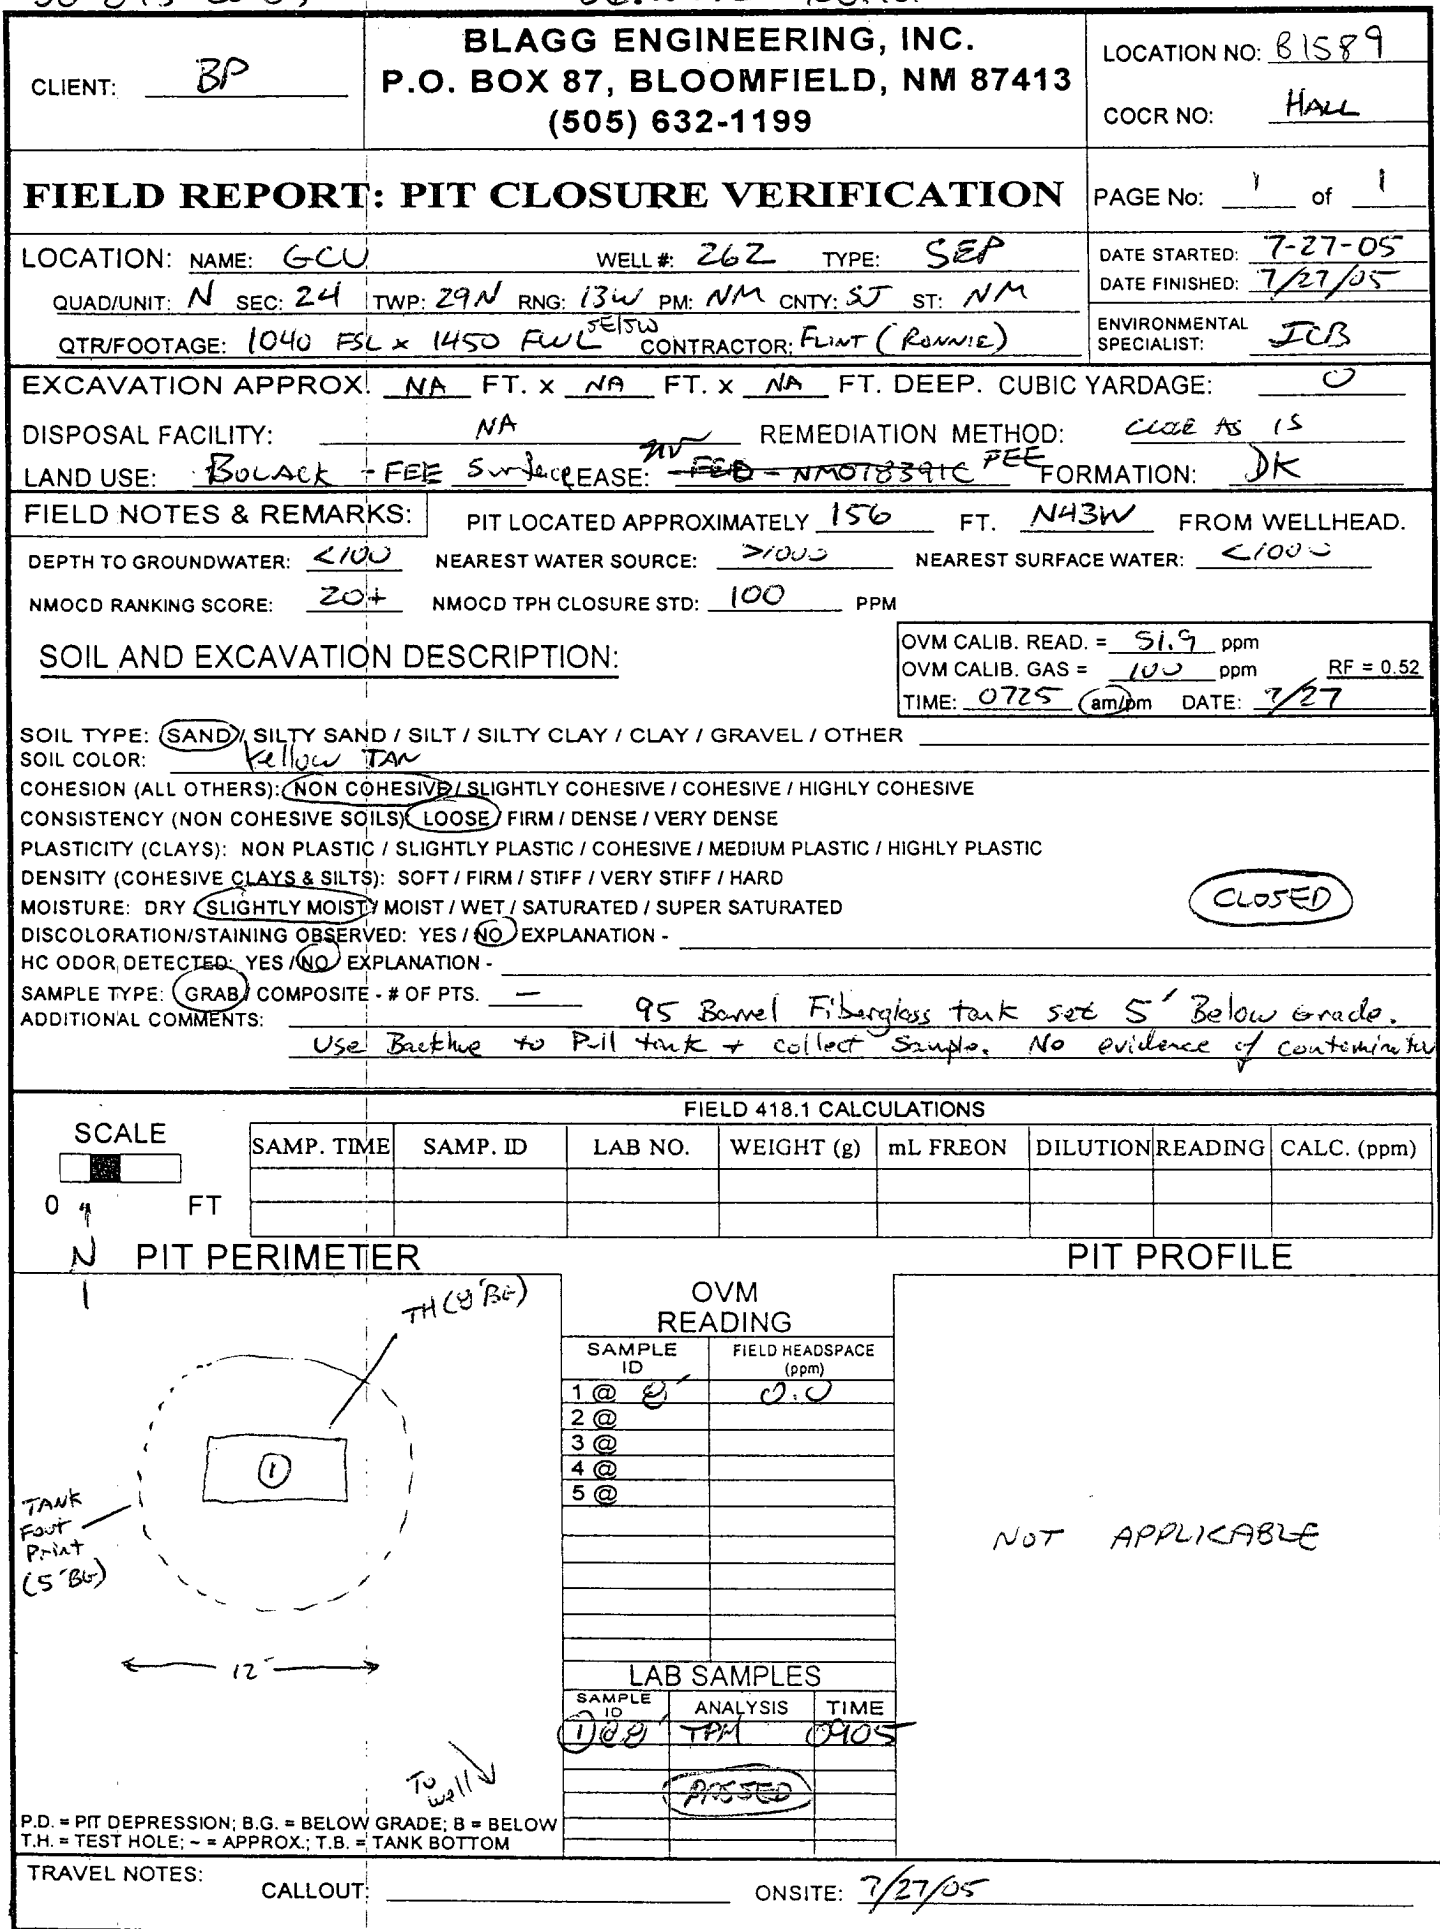 CLIENT: BP
BLAGG ENGINEERING, INC.
P.O. BOX 87, BLOOMFIELD, NM 87413
(505) 632-1199
LOCATION NO: B1589
COCR NO: HALL
FIELD REPORT: PIT CLOSURE VERIFICATION
PAGE No: 1 of 1
LOCATION: NAME: GCU WELL #: 262 TYPE: SEP
QUAD/UNIT: N SEC: 24 TWP: 29N RNG: 13W PM: NM CNTY: SJ ST: NM
QTR/FOOTAGE: 1040 FSL x 1450 FWL SE/SW CONTRACTOR: FLINT (RONNIE)
DATE STARTED: 7-27-05
DATE FINISHED: 7/27/05
ENVIRONMENTAL
SPECIALIST: JCB
EXCAVATION APPROX. NA FT. x NA FT. x NA FT. DEEP. CUBIC YARDAGE: 0
DISPOSAL FACILITY: NA REMEDIATION METHOD: CLOSE AS IS
LAND USE: BOLACK - FEE Surface LEASE: FEE FORMATION: DK
FIELD NOTES & REMARKS: PIT LOCATED APPROXIMATELY 156 FT. N43W FROM WELLHEAD.
DEPTH TO GROUNDWATER: <100 NEAREST WATER SOURCE: >1000 NEAREST SURFACE WATER: <1000
NMOCD RANKING SCORE: 20+ NMOCD TPH CLOSURE STD: 100 PPM
SOIL AND EXCAVATION DESCRIPTION:
OVM CALIB. READ. = 51.9 ppm
OVM CALIB. GAS = 100 ppm RF = 0.52
TIME: 0725 am/pm DATE: 7/27
SOIL TYPE: SAND / SILTY SAND / SILT / SILTY CLAY / CLAY / GRAVEL / OTHER
SOIL COLOR: Yellow TAN
COHESION (ALL OTHERS): NON COHESIVE / SLIGHTLY COHESIVE / COHESIVE / HIGHLY COHESIVE
CONSISTENCY (NON COHESIVE SOILS): LOOSE / FIRM / DENSE / VERY DENSE
PLASTICITY (CLAYS): NON PLASTIC / SLIGHTLY PLASTIC / COHESIVE / MEDIUM PLASTIC / HIGHLY PLASTIC
DENSITY (COHESIVE CLAYS & SILTS): SOFT / FIRM / STIFF / VERY STIFF / HARD
MOISTURE: DRY / SLIGHTLY MOIST / MOIST / WET / SATURATED / SUPER SATURATED
CLOSED
DISCOLORATION/STAINING OBSERVED: YES / NO EXPLANATION -
HC ODOR DETECTED: YES / NO EXPLANATION -
SAMPLE TYPE: GRAB / COMPOSITE - # OF PTS. —
ADDITIONAL COMMENTS: 95 Barrel Fiberglass tank set 5' Below Grade.
Use Backhoe to Pull tank + collect Sample. No evidence of contamination
FIELD 418.1 CALCULATIONS
SCALE
0 FT
SAMP. TIME SAMP. ID LAB NO. WEIGHT (g) mL FREON DILUTION READING CALC. (ppm)
N
PIT PERIMETER
PIT PROFILE
TH (8' BG)
1
TANK
Foot
Print
(5' BG)
12'
To
well
OVM
READING
SAMPLE
ID
FIELD HEADSPACE
(ppm)
1 @ 8' 0.0
2 @
3 @
4 @
5 @
NOT APPLICABLE
LAB SAMPLES
SAMPLE
ID
ANALYSIS TIME
1 @ 8' TPH 0905
PASSED
P.D. = PIT DEPRESSION; B.G. = BELOW GRADE; B = BELOW
T.H. = TEST HOLE; ~ = APPROX.; T.B. = TANK BOTTOM
TRAVEL NOTES:
CALLOUT: ONSITE: 7/27/05